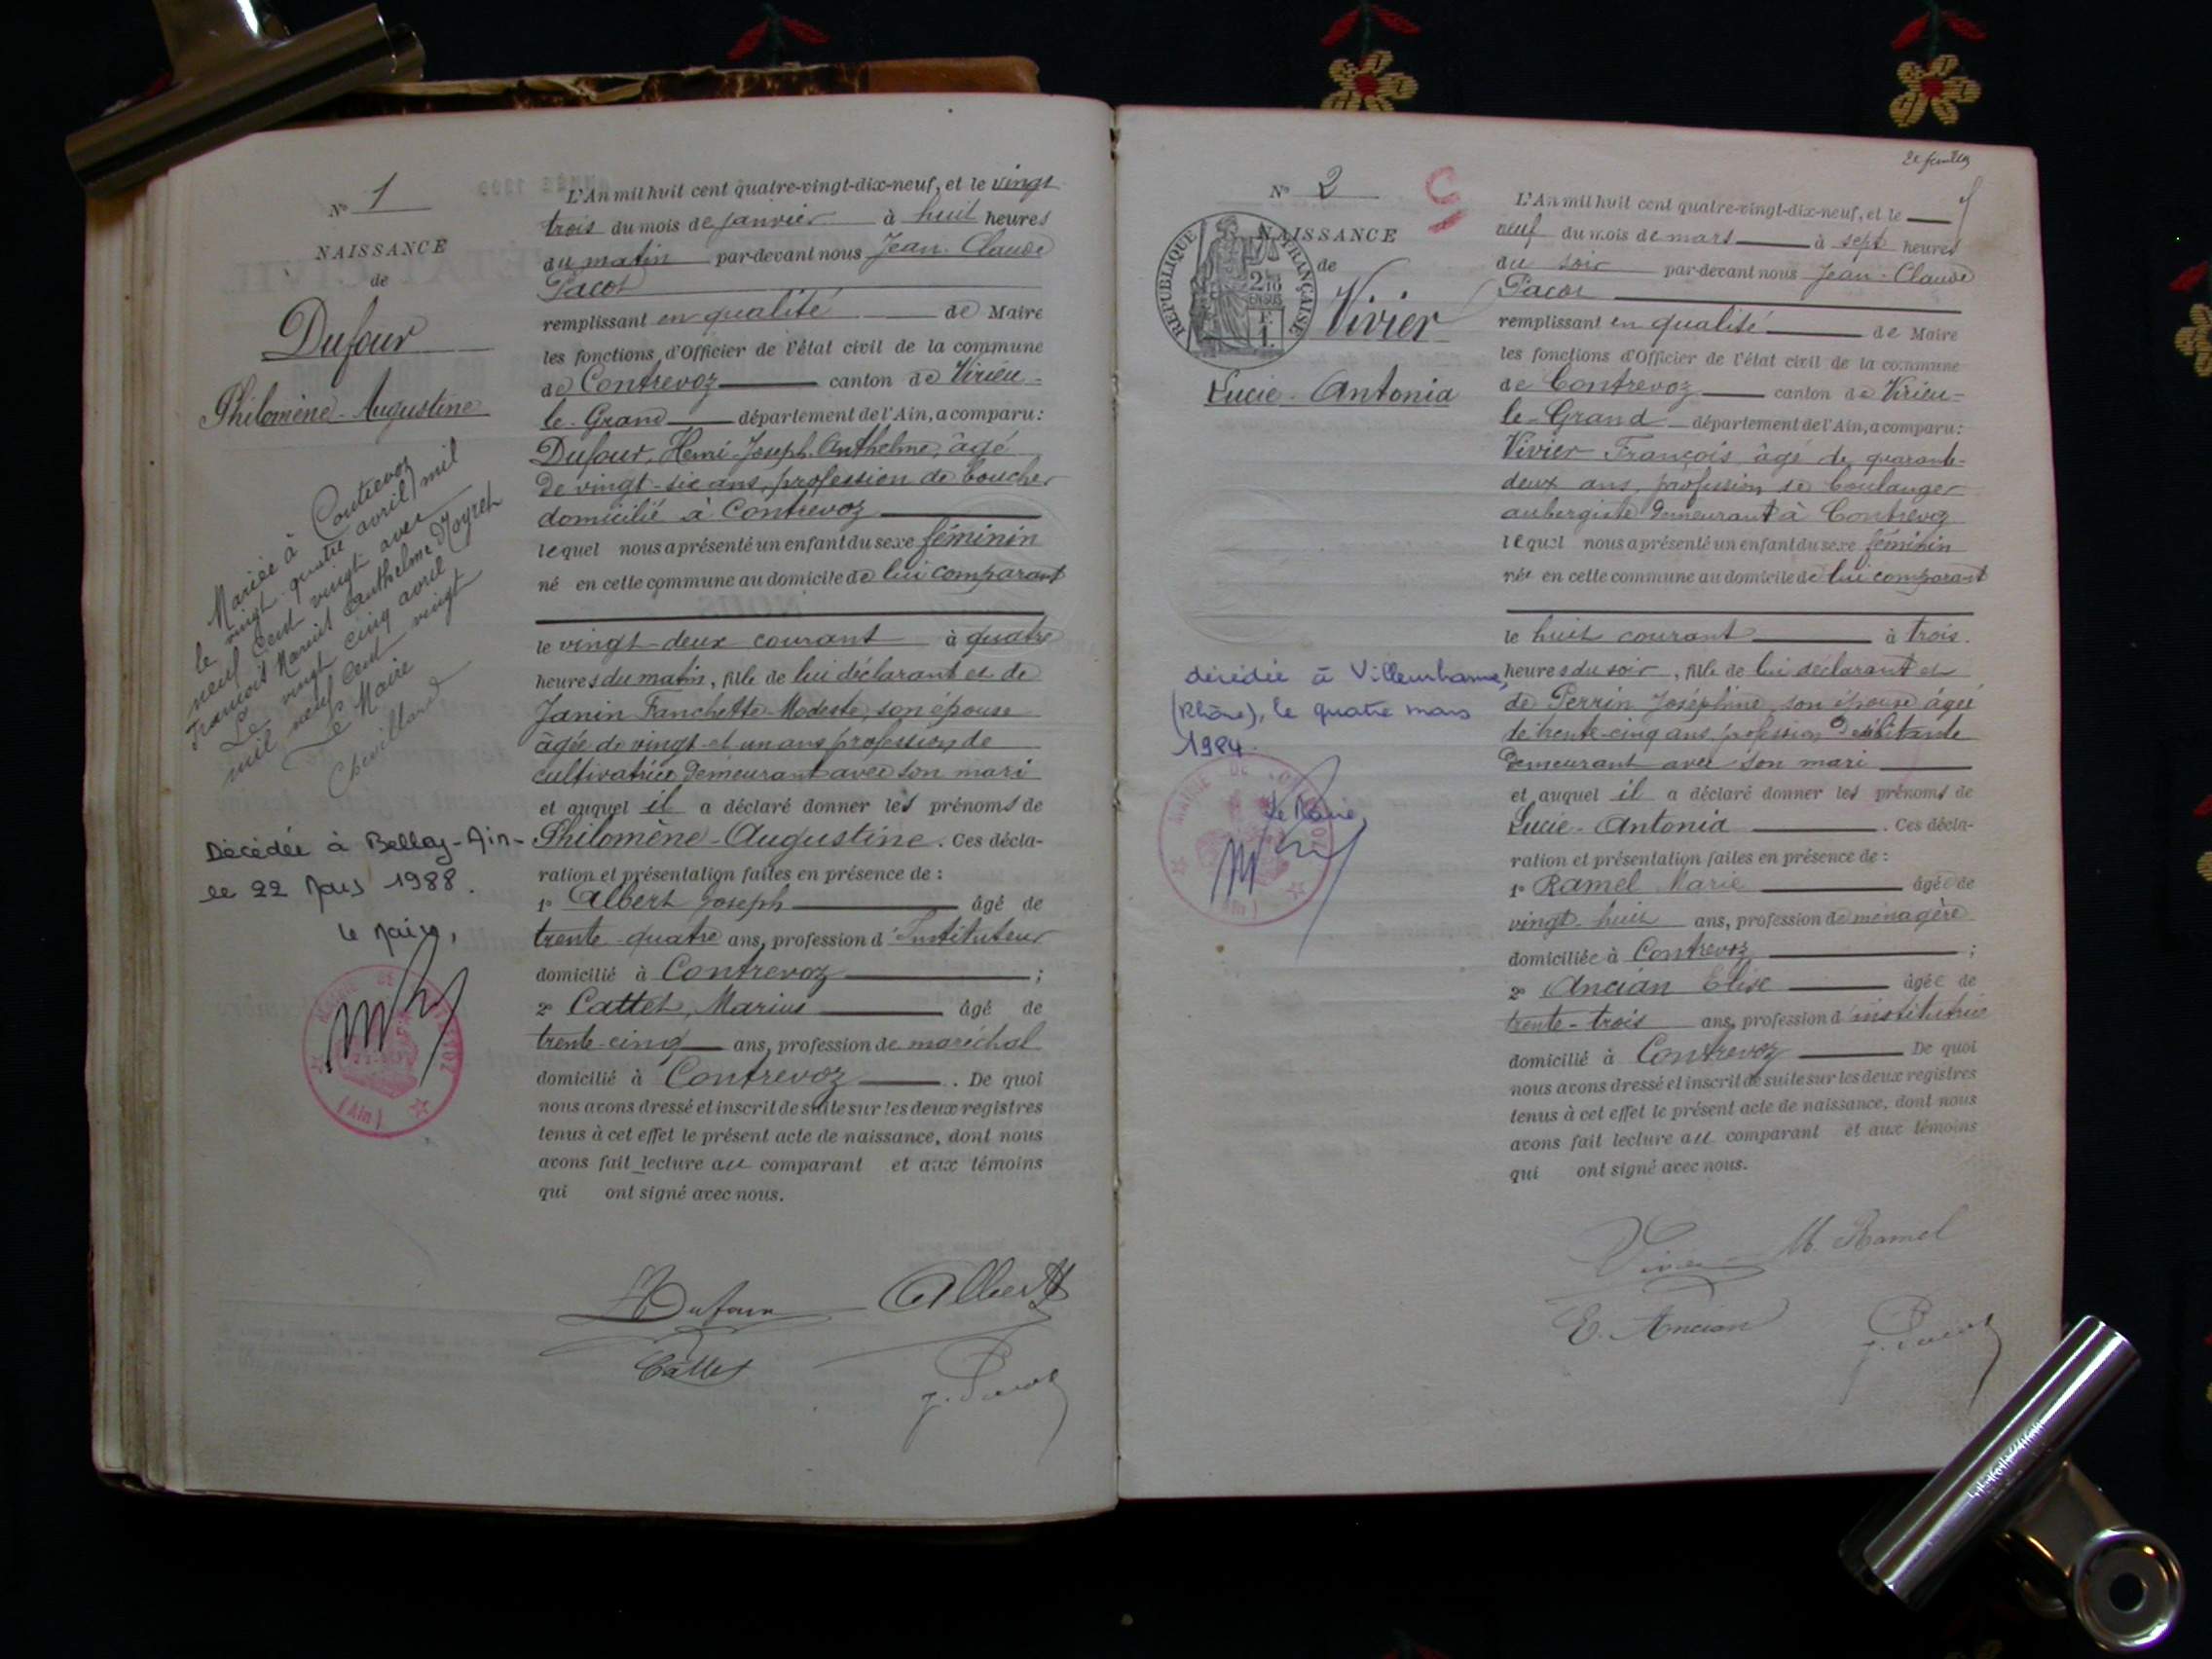 N° 1
NAISSANCE
de
Dufour
Philomène-Augustine
Mariée à Contrevoz
le vingt quatre avril mil
neuf cent vingt avec
François Marius Anthelme
Le vingt cinq avril
mil neuf cent vingt
Le Maire
Chevillard
Décédée à Belley-Ain-
le 22 Mars 1988.
le Maire,
MAIRIE DE CONTREVOZ
(Ain)
L'An mil huit cent quatre-vingt-dix-neuf, et le vingt
trois du mois de janvier à huit heures
du matin par-devant nous Jean-Claude
Pacot
remplissant en qualité de Maire
les fonctions d'Officier de l'état civil de la commune
de Contrevoz canton de Virieu-
le-Grand département de l'Ain, a comparu:
Dufour, Henri-Joseph-Anthelme, âgé
de vingt-six ans, profession de boucher
domicilié à Contrevoz
lequel nous a présenté un enfant du sexe féminin
né en cette commune au domicile de lui comparant
le vingt-deux courant à quatre
heures du matin, fille de lui déclarant et de
Janin Fanchette-Modeste, son épouse
âgée de vingt-et-un ans profession de
cultivatrice demeurant avec son mari
et auquel il a déclaré donner les prénoms de
Philomène-Augustine. Ces décla-
ration et présentation faites en présence de :
1° Albert Joseph âgé de
trente-quatre ans, profession d'Instituteur
domicilié à Contrevoz ;
2° Cattet, Marius âgé de
trente-cinq ans, profession de maréchal
domicilié à Contrevoz . De quoi
nous avons dressé et inscrit de suite sur les deux registres
tenus à cet effet le présent acte de naissance, dont nous
avons fait lecture au comparant et aux témoins
qui ont signé avec nous.
H Dufour Albert
Cattet
J. Pacot
2e feuillet
N° 2
NAISSANCE
de
RÉPUBLIQUE FRANÇAISE
2/10
EN SUS
F.
1.
Vivier
Lucie-Antonia
décédée à Villeurbanne,
(Rhône), le quatre mars
1984.
Le Maire,
MAIRIE DE CONTREVOZ
(Ain)
L'An mil huit cent quatre-vingt-dix-neuf, et le
neuf du mois de mars à sept heures
du soir par-devant nous Jean-Claude
Pacot
remplissant en qualité de Maire
les fonctions d'Officier de l'état civil de la commune
de Contrevoz canton de Virieu-
le-Grand département de l'Ain, a comparu:
Vivier François, âgé de quarante-
deux ans, profession de boulanger
aubergiste demeurant à Contrevoz
lequel nous a présenté un enfant du sexe féminin
née en cette commune au domicile de lui comparant
le huit courant à trois
heures du soir, fille de lui déclarant et
de Perrin Joséphine, son épouse âgée
de trente-cinq ans, profession débitante
demeurant avec son mari
et auquel il a déclaré donner les prénoms de
Lucie-Antonia . Ces décla-
ration et présentation faites en présence de :
1° Ramel Marie âgée de
vingt-huit ans, profession de ménagère
domiciliée à Contrevoz ;
2° Ancian Elise âgée de
trente-trois ans, profession d'institutrice
domicilié à Contrevoz De quoi
nous avons dressé et inscrit de suite sur les deux registres
tenus à cet effet le présent acte de naissance, dont nous
avons fait lecture au comparant et aux témoins
qui ont signé avec nous.
Vivier M. Ramel
E. Ancian
J. Pacot